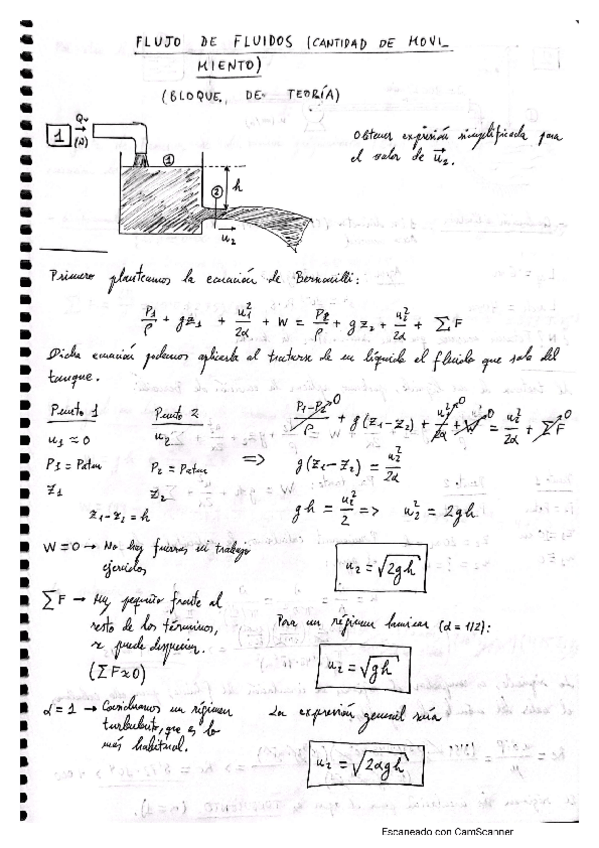 FLUJO DE FLUIDOS (CANTIDAD DE MOVI_
MIENTO)
(BLOQUE DE TEORÍA)
1
Qv
(N)
1
h
2
u₂
Obtener expresión simplificada para
el valor de u₂.
Primero planteamos la ecuación de Bernouilli:
P₁/ρ + gz₁ + u₁²/2α + W = P₂/ρ + gz₂ + u₂²/2α + ΣF
Dicha ecuación podemos aplicarla al tratarse de un líquido el fluido que sale del
tanque.
Punto 1
u₁ ≈ 0
P₁ = Patm
z₁
Punto 2
u₂
P₂ = Patm
z₂
z₁-z₂ = h
(P₁-P₂)/ρ → 0 + g(z₁-z₂) + u₁²/2α → 0 + W → 0 = u₂²/2α + ΣF → 0
=> g(z₁-z₂) = u₂²/2α
gh = u₂²/2 => u₂² = 2gh
W=0 → No hay fuerzas ni trabajo
ejercidos
u₂ = √2gh
ΣF → Muy pequeño frente al
resto de los términos,
se puede despreciar.
(ΣF≈0)
Para un régimen laminar (α = 1/2):
u₂ = √gh
α = 1 → Consideramos un régimen
turbulento, que es lo
más habitual.
La expresión general sería
u₂ = √2αgh
Escaneado con CamScanner